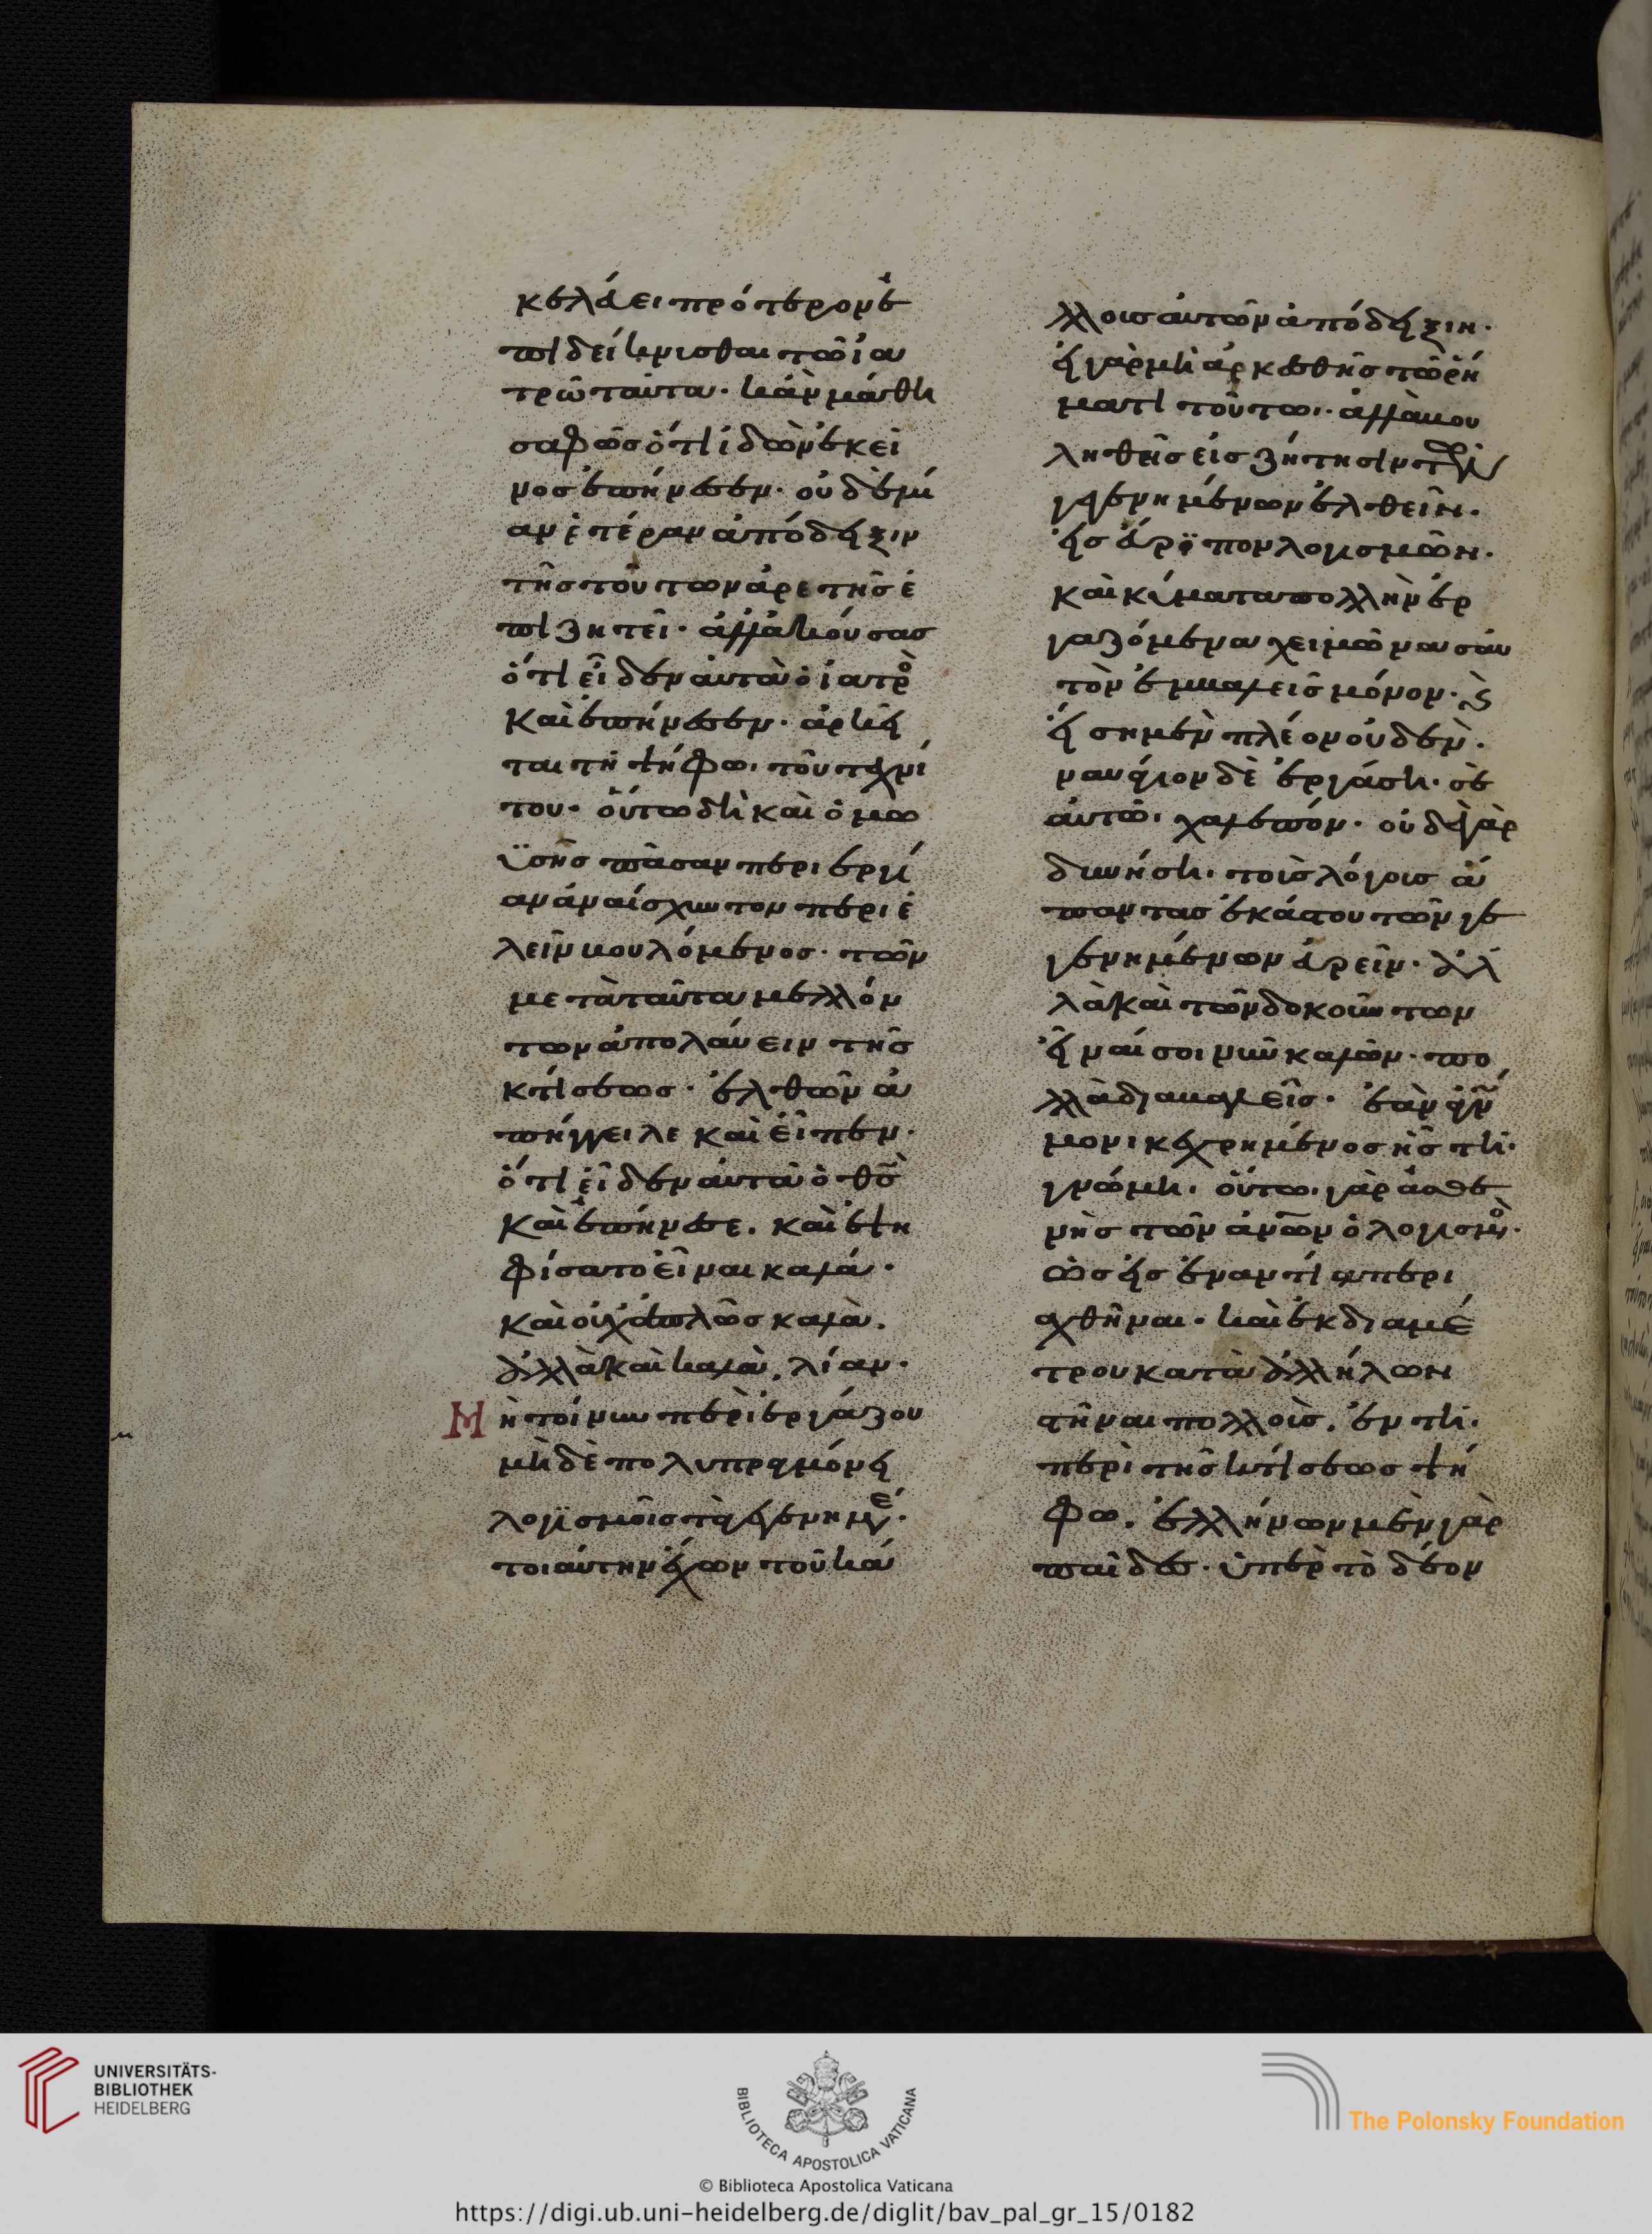 κελάει πρότερον ἐ
πιδείκνυσθαι τῶ ἰα
τρῶ ταῦτα· κἂν μάθη
σαφῶς ὅτι ἰδὼν ἐκεῖ
νος ἐπήνεσεν· οὐδὲ μί
αν ἑτέραν ἀπόδειξιν
τῆς τούτων ἀρετῆς ἐ
πιζητεῖ· ἀλλὰ ἀκούσας
ὅτι εἶδεν αὐτὰ ὁ ἰατρὸ
καὶ ἐπήνεσεν· ἀρκεῖ
ται τῆ ψήφω τοῦ τεχνί
του· οὕτω δὴ καὶ ὁ μω
ϋσῆς πᾶσαν περιεργί
αν ἀναίσχυντον περιε
λεῖν βουλόμενος· τῶν
μετὰ ταῦτα μελλόν
των ἀπολαύειν τῆς
κτίσεως· ἐλθὼν ἀ
πήγγειλε καὶ εἶπεν·
ὅτι εἶδεν αὐτὰ ὁ θσ
καὶ ἐπήνεσε, καὶ ἐψη
φίσατο εἶναι καλά·
καὶ οὐχ ἁπλῶς καλὰ,
ἀλλὰ καὶ καλὰ, λίαν·
Μὴ τοίνυν περιεργάζου
μὴδὲ πολυπραγμόνει
λογϊσμοῖς τὰ γεγενημέ·
τοιαύτην ἔχων τοῦ κά
λλους αὐτῶν ἀπόδειξιν·
εἰ γὰρ μὴ ἀρκεσθῆς τῶ ῥή
ματι τούτω· ἀλλὰ βου
ληθῆς εἰς ζήτησιν τῶν
γεγενημένων ἐλθεῖν·
εἰς εὔριπον λογισμῶν·
καὶ κύματα πολλὴν ἐρ
γαζόμενα χειμῶνα σαυ
τὸν ἐμβαλεῖς μόνον· καὶ
εἴση μὲν πλέον οὐδὲν·
ναυάγιον δὲ ἐργάση· σε
αυτῶ, χαλεπόν· οὐδὲ γὰρ
δυνήση τοὺς λόγους ἅ
παντας ἑκάστου τῶν γε
γενημένων εὑρεῖν· ἀλ
λὰ καὶ τῶν δοκούντων
εἶναί σοι νῦν καλῶν· πο
λλὰ διαβαλεῖς· ἐὰν ἀγνώ
μονι κεχρημένος ἦς τῆ·
γνώμη· οὕτω γὰρ ἀσθε
νὴς τῶν ἀνων ὁ λογισμὸ·
ὡς εἰς ἐναντία περι
αχθῆναι· καὶ ἐκ διαμέ
τρου κατὰ ἀλλήλων
στῆναι πολλοὺς, ἐν τῆ·
περὶ τῆς κτίσεως ψή
φω, ἑλλήνων μὲν γὰρ
παῖδες· ὑπὲρ τὸ δέον
UNIVERSITÄTS-
BIBLIOTHEK
HEIDELBERG
BIBLIOTECA APOSTOLICA VATICANA
The Polonsky Foundation
© Biblioteca Apostolica Vaticana
https://digi.ub.uni-heidelberg.de/diglit/bav_pal_gr_15/0182